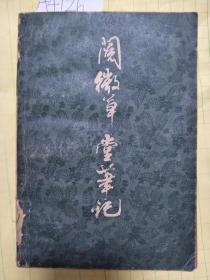 阅微草堂笔记